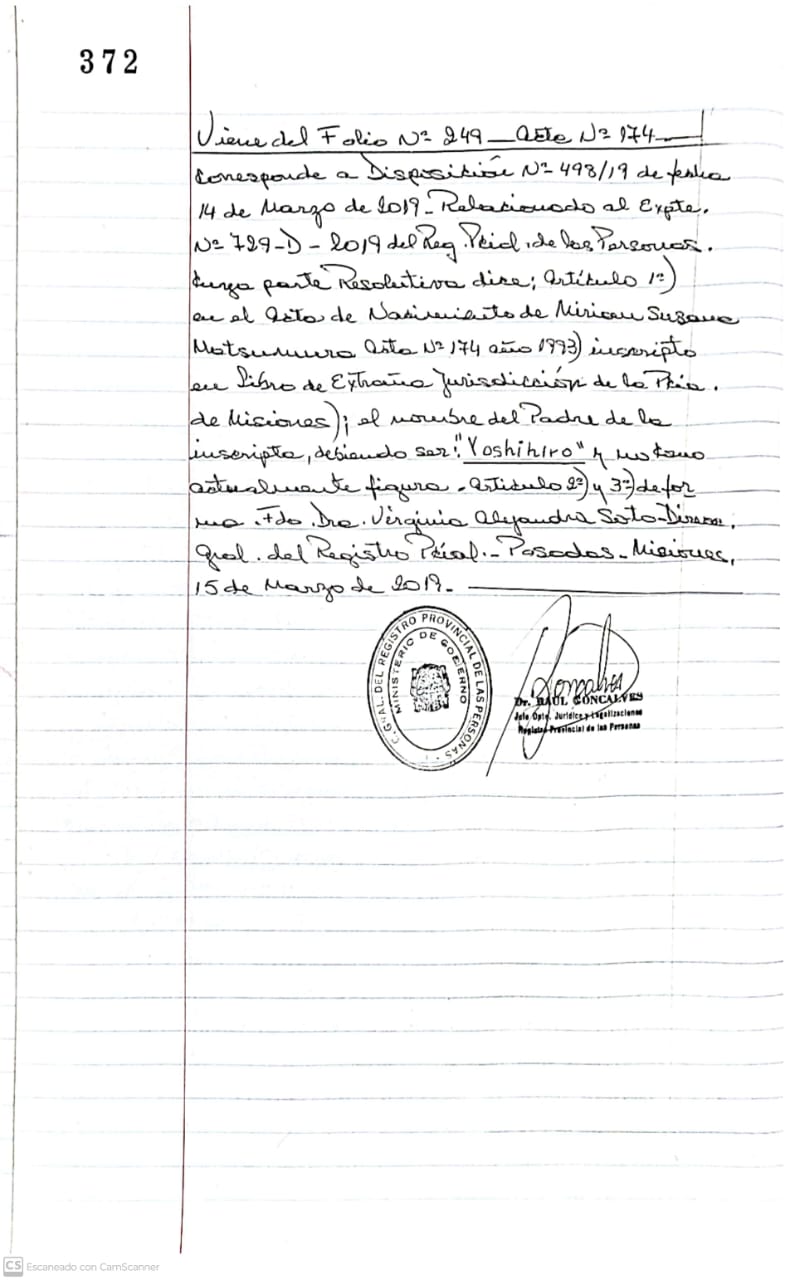 372
Viene del Folio Nº 249 — Acta Nº 174 —
Corresponde a Disposición Nº 498/19 de fecha
14 de Marzo de 2019 - Relacionado al Expte.
Nº 729-D - 2019 del Reg. Pcial. de las Personas.
Cuya parte Resolutiva dice; Artículo 1º)
en el Acta de Nacimiento de Miriam Susana
Matsumura Acta Nº 174 año 1993) inscripto
en Libro de Extraña Jurisdicción de la Pcia.
de Misiones); el nombre del Padre de la
inscripta, debiendo ser: "Yoshihiro" y no como
actualmente figura. Artículo 2º) y 3º) de for
ma. Fdo. Dra. Virginia Alejandra Soto-
Gral. del Registro Pcial. - Posadas - Misiones,
15 de Marzo de 2019. —
C. GRAL. DEL REGISTRO PROVINCIAL DE LAS PERSONAS
MINISTERIO DE GOBIERNO
Goncalves
Dr. RAUL GONCALVES
Jefe Dpto. Jurídico y Legalizaciones
Registro Provincial de las Personas
CS Escaneado con CamScanner